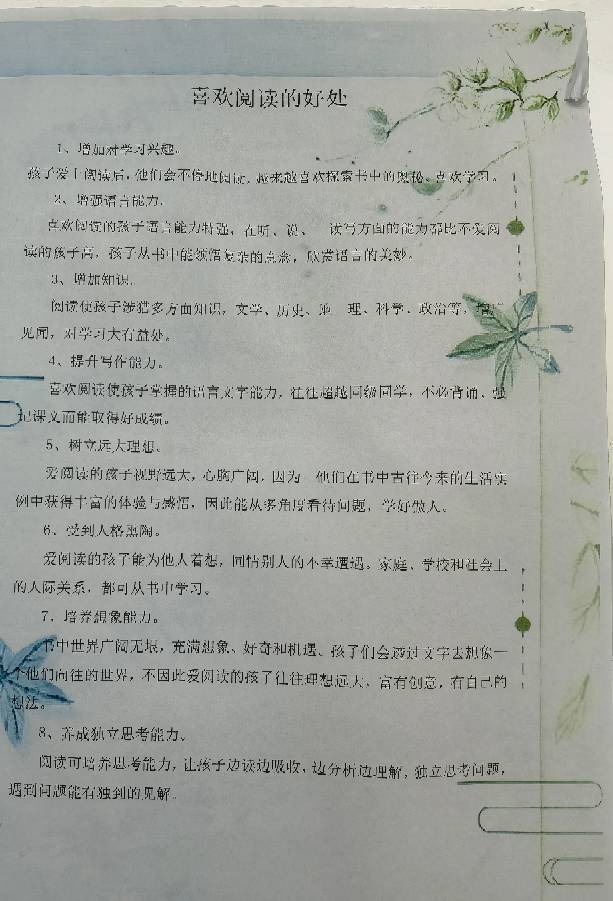 喜欢阅读的好处
1、增加对学习兴趣。
孩子爱上阅读后，他们会不停地阅读，越来越喜欢探索书中的奥秘，喜欢学习。
2、增强语言能力。
喜欢阅读的孩子语言能力特强，在听、说、 读写方面的能力都比不爱阅
读的孩子高，孩子从书中能领悟复杂的意念，欣赏语言的美妙。
3、增加知识。
阅读使孩子涉猎多方面知识，文学、历史、地 理、科学、政治等，增广
见闻，对学习大有益处。
4、提升写作能力。
喜欢阅读使孩子掌握的语言文字能力，往往超越同级同学，不必背诵、强
记课文而能取得好成绩。
5、树立远大理想。
爱阅读的孩子视野远大，心胸广阔，因为 他们在书中古往今来的生活实
例中获得丰富的体验与感悟，因此能从多角度看待问题，学好做人。
6、受到人格熏陶。
爱阅读的孩子能为他人着想，同情别人的不幸遭遇。家庭、学校和社会上
的人际关系，都可从书中学习。
7、培养想象能力。
书中世界广阔无垠，充满想象、好奇和机遇、孩子们会透过文字去想像一
个他们向往的世界，不因此爱阅读的孩子往往理想远大、富有创意，有自己的
想法。
8、养成独立思考能力。
阅读可培养思考能力，让孩子边读边吸收，边分析边理解，独立思考问题，
遇到问题能有独到的见解。